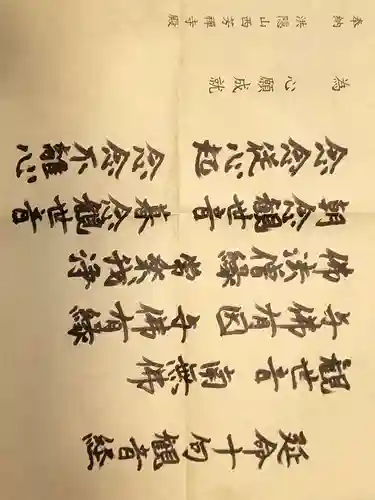 延命十句観音経
観世音 南無佛
与佛有因 与佛有縁
佛法僧縁 常楽我浄
朝念観世音 暮念観世音
念念従心起 念念不離心
為 心願成就
奉納 洪隠山西芳禅寺殿